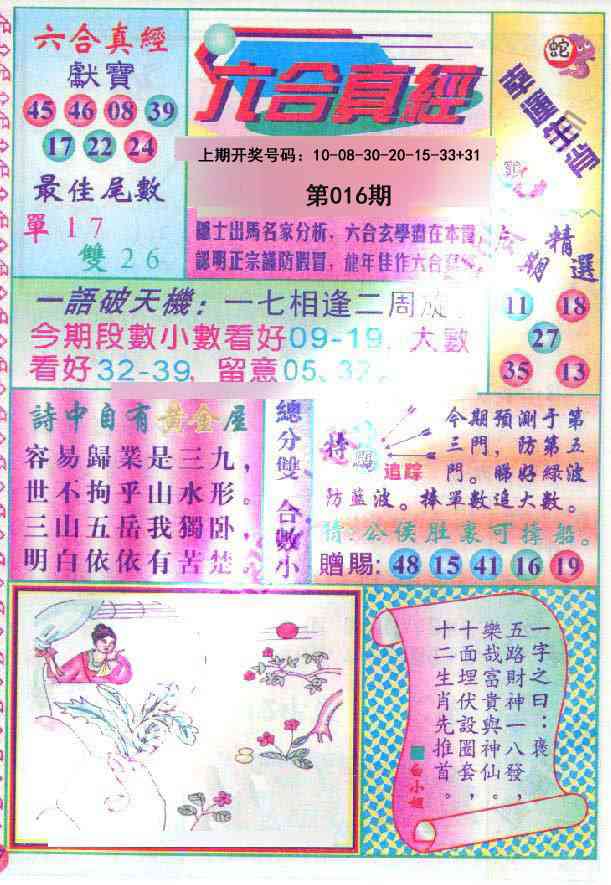 六合真經
獻寶
45 46 08 39
17 22 24
最佳尾數
單17
雙26
六合真經
上期开奖号码：10-08-30-20-15-33+31
第016期
隱士出馬名家分析，六合玄學盡在本書，
認明正宗謹防假冒，龍年佳作六合
蛇
期
精
選
11 18
27
35 13
一語破天機：一七相逢二周
今期段數小數看好09-19，大數
看好32-39，留意05、37。
詩中自有黃金屋
容易歸業是三九，
世不拘乎山水形。
三山五岳我獨卧，
明白依依有苦楚。
總分雙 合數小
特碼
追踪
今期預測于第
三門，防第五
門。睇好綠波
防藍波。捧單数追大數。
猜：公侯肚裏可撑船。
贈賜：48 15 41 16 19
一字之曰：褒
五路財神一八發，
樂哉富貴與神仙。
十面埋伏設圈套，
十二生肖先推首。
白小姐